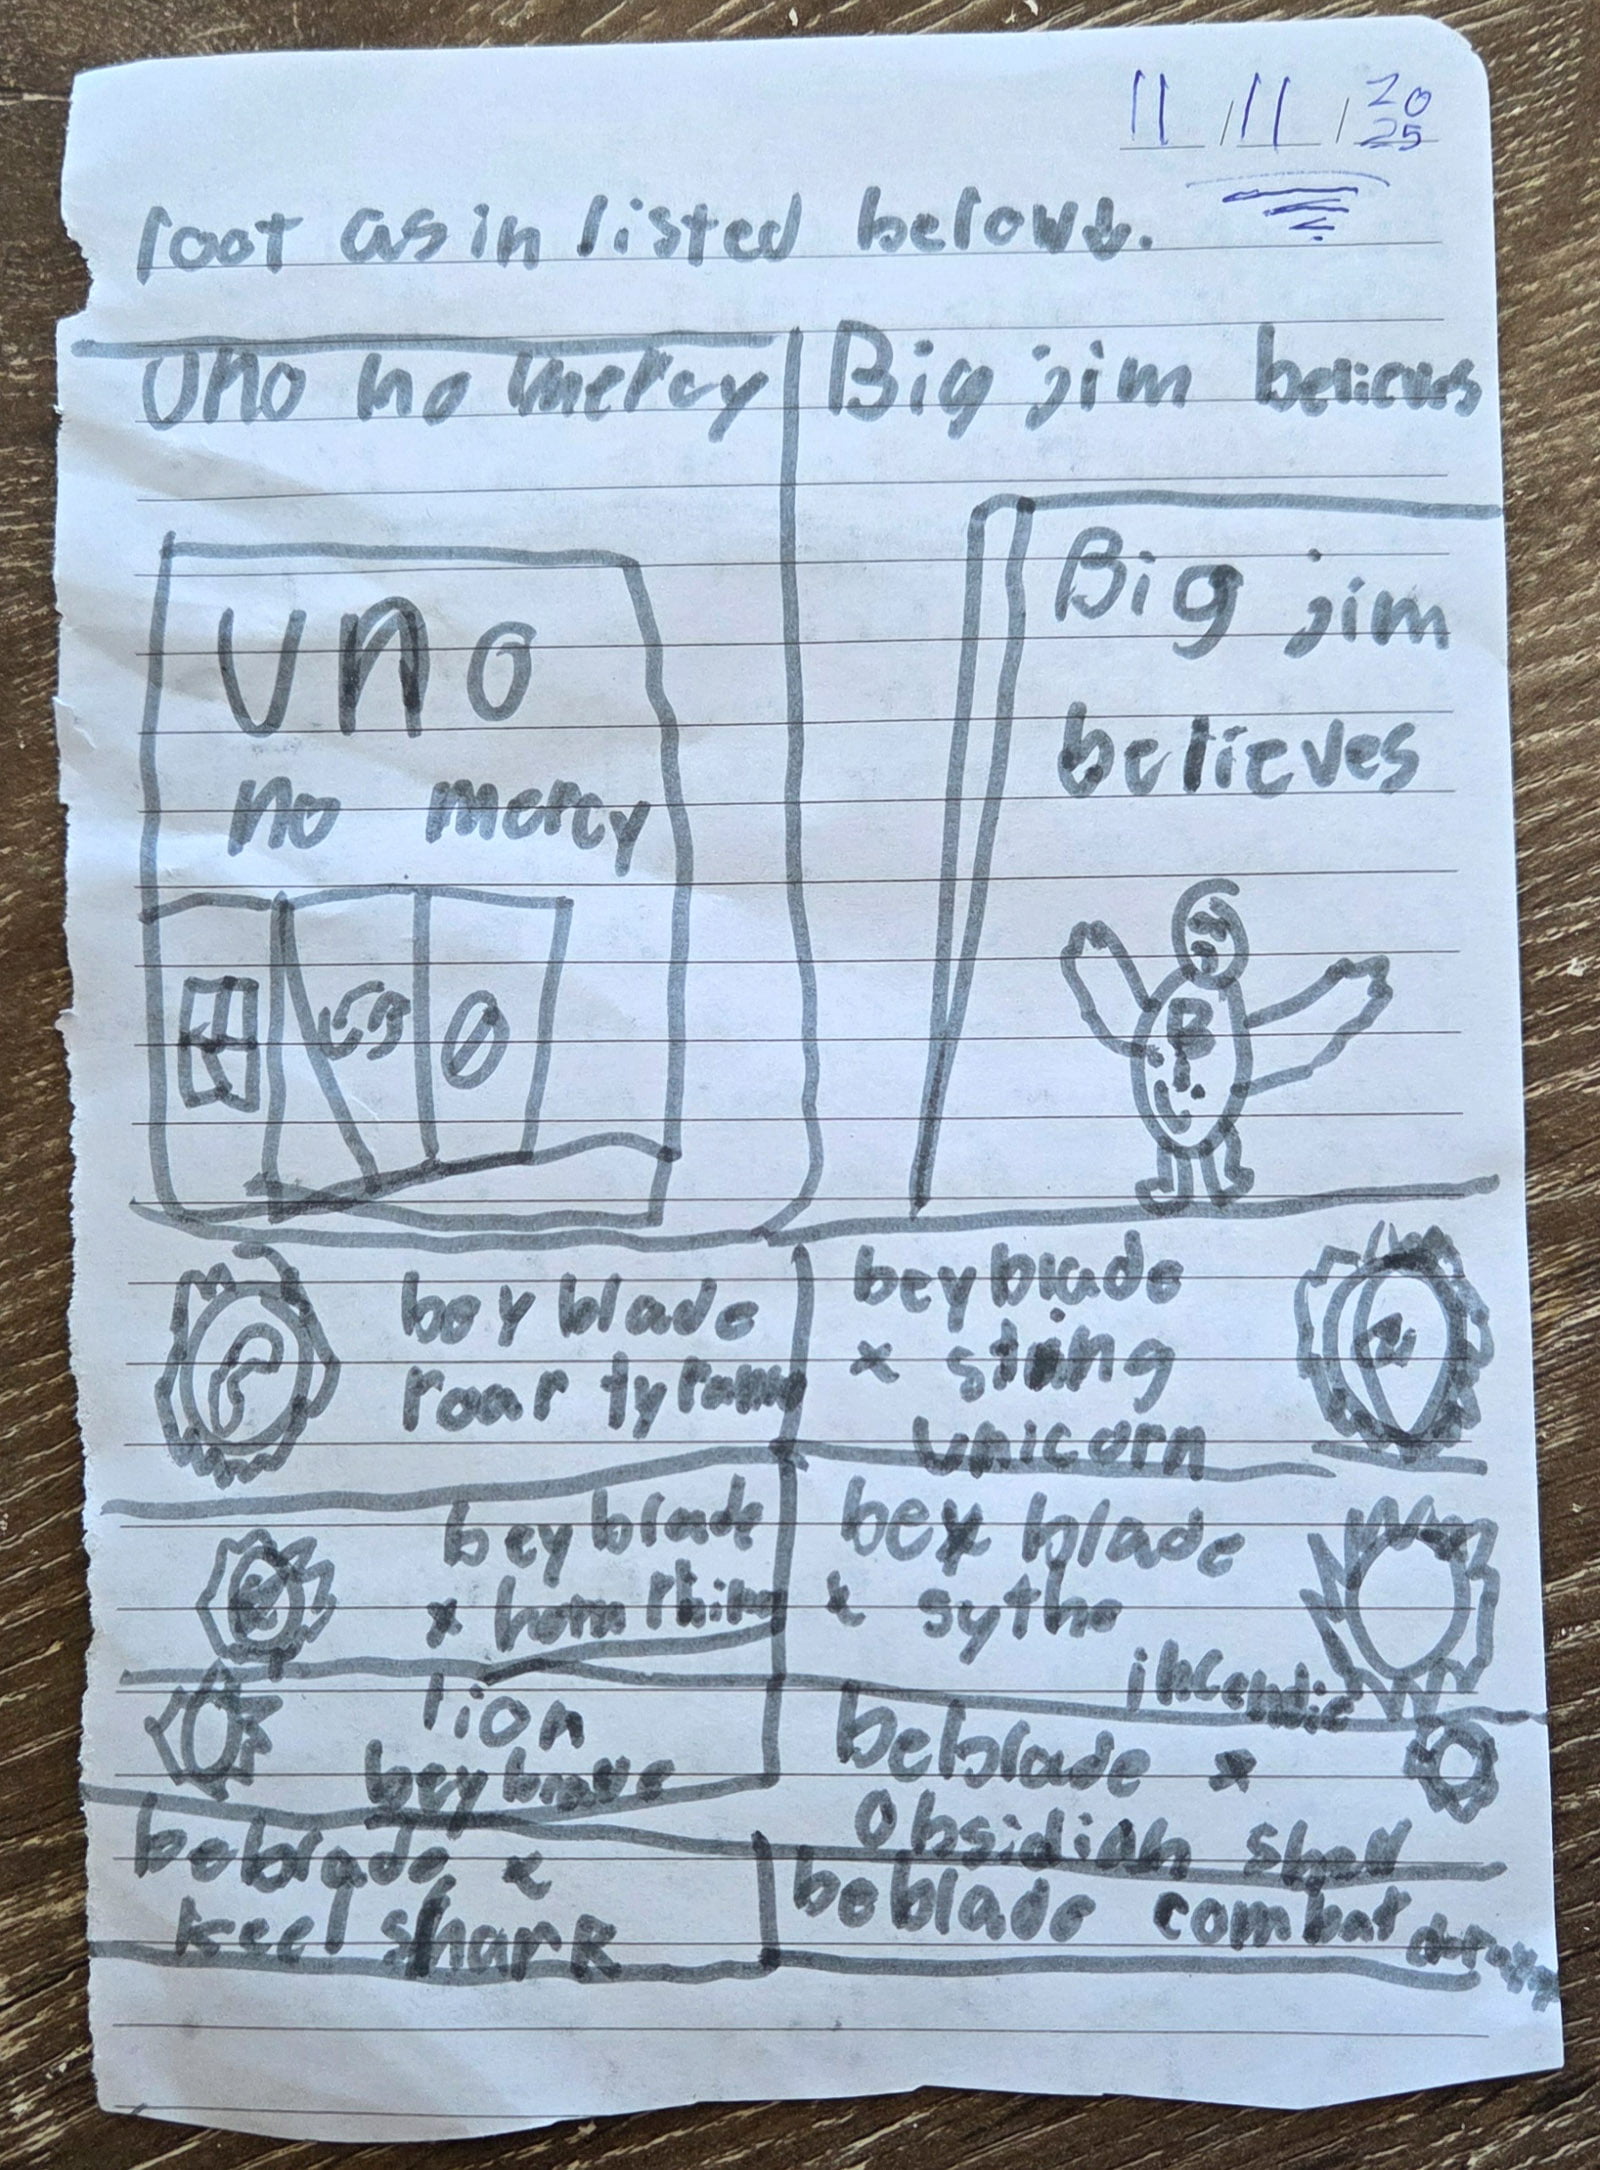 11/11/2025
loot as in listed below.
Uno no mercy
Big jim believes
uno
no mercy
Big jim
believes
B
beyblade
roar tyranno
beyblade
x sting
unicorn
beyblade
x horn rhino
bey blade
x sythe
incendio
lion
beyblade
beblade x
Obsidian shell
beblade x
keel shark
beblade combat